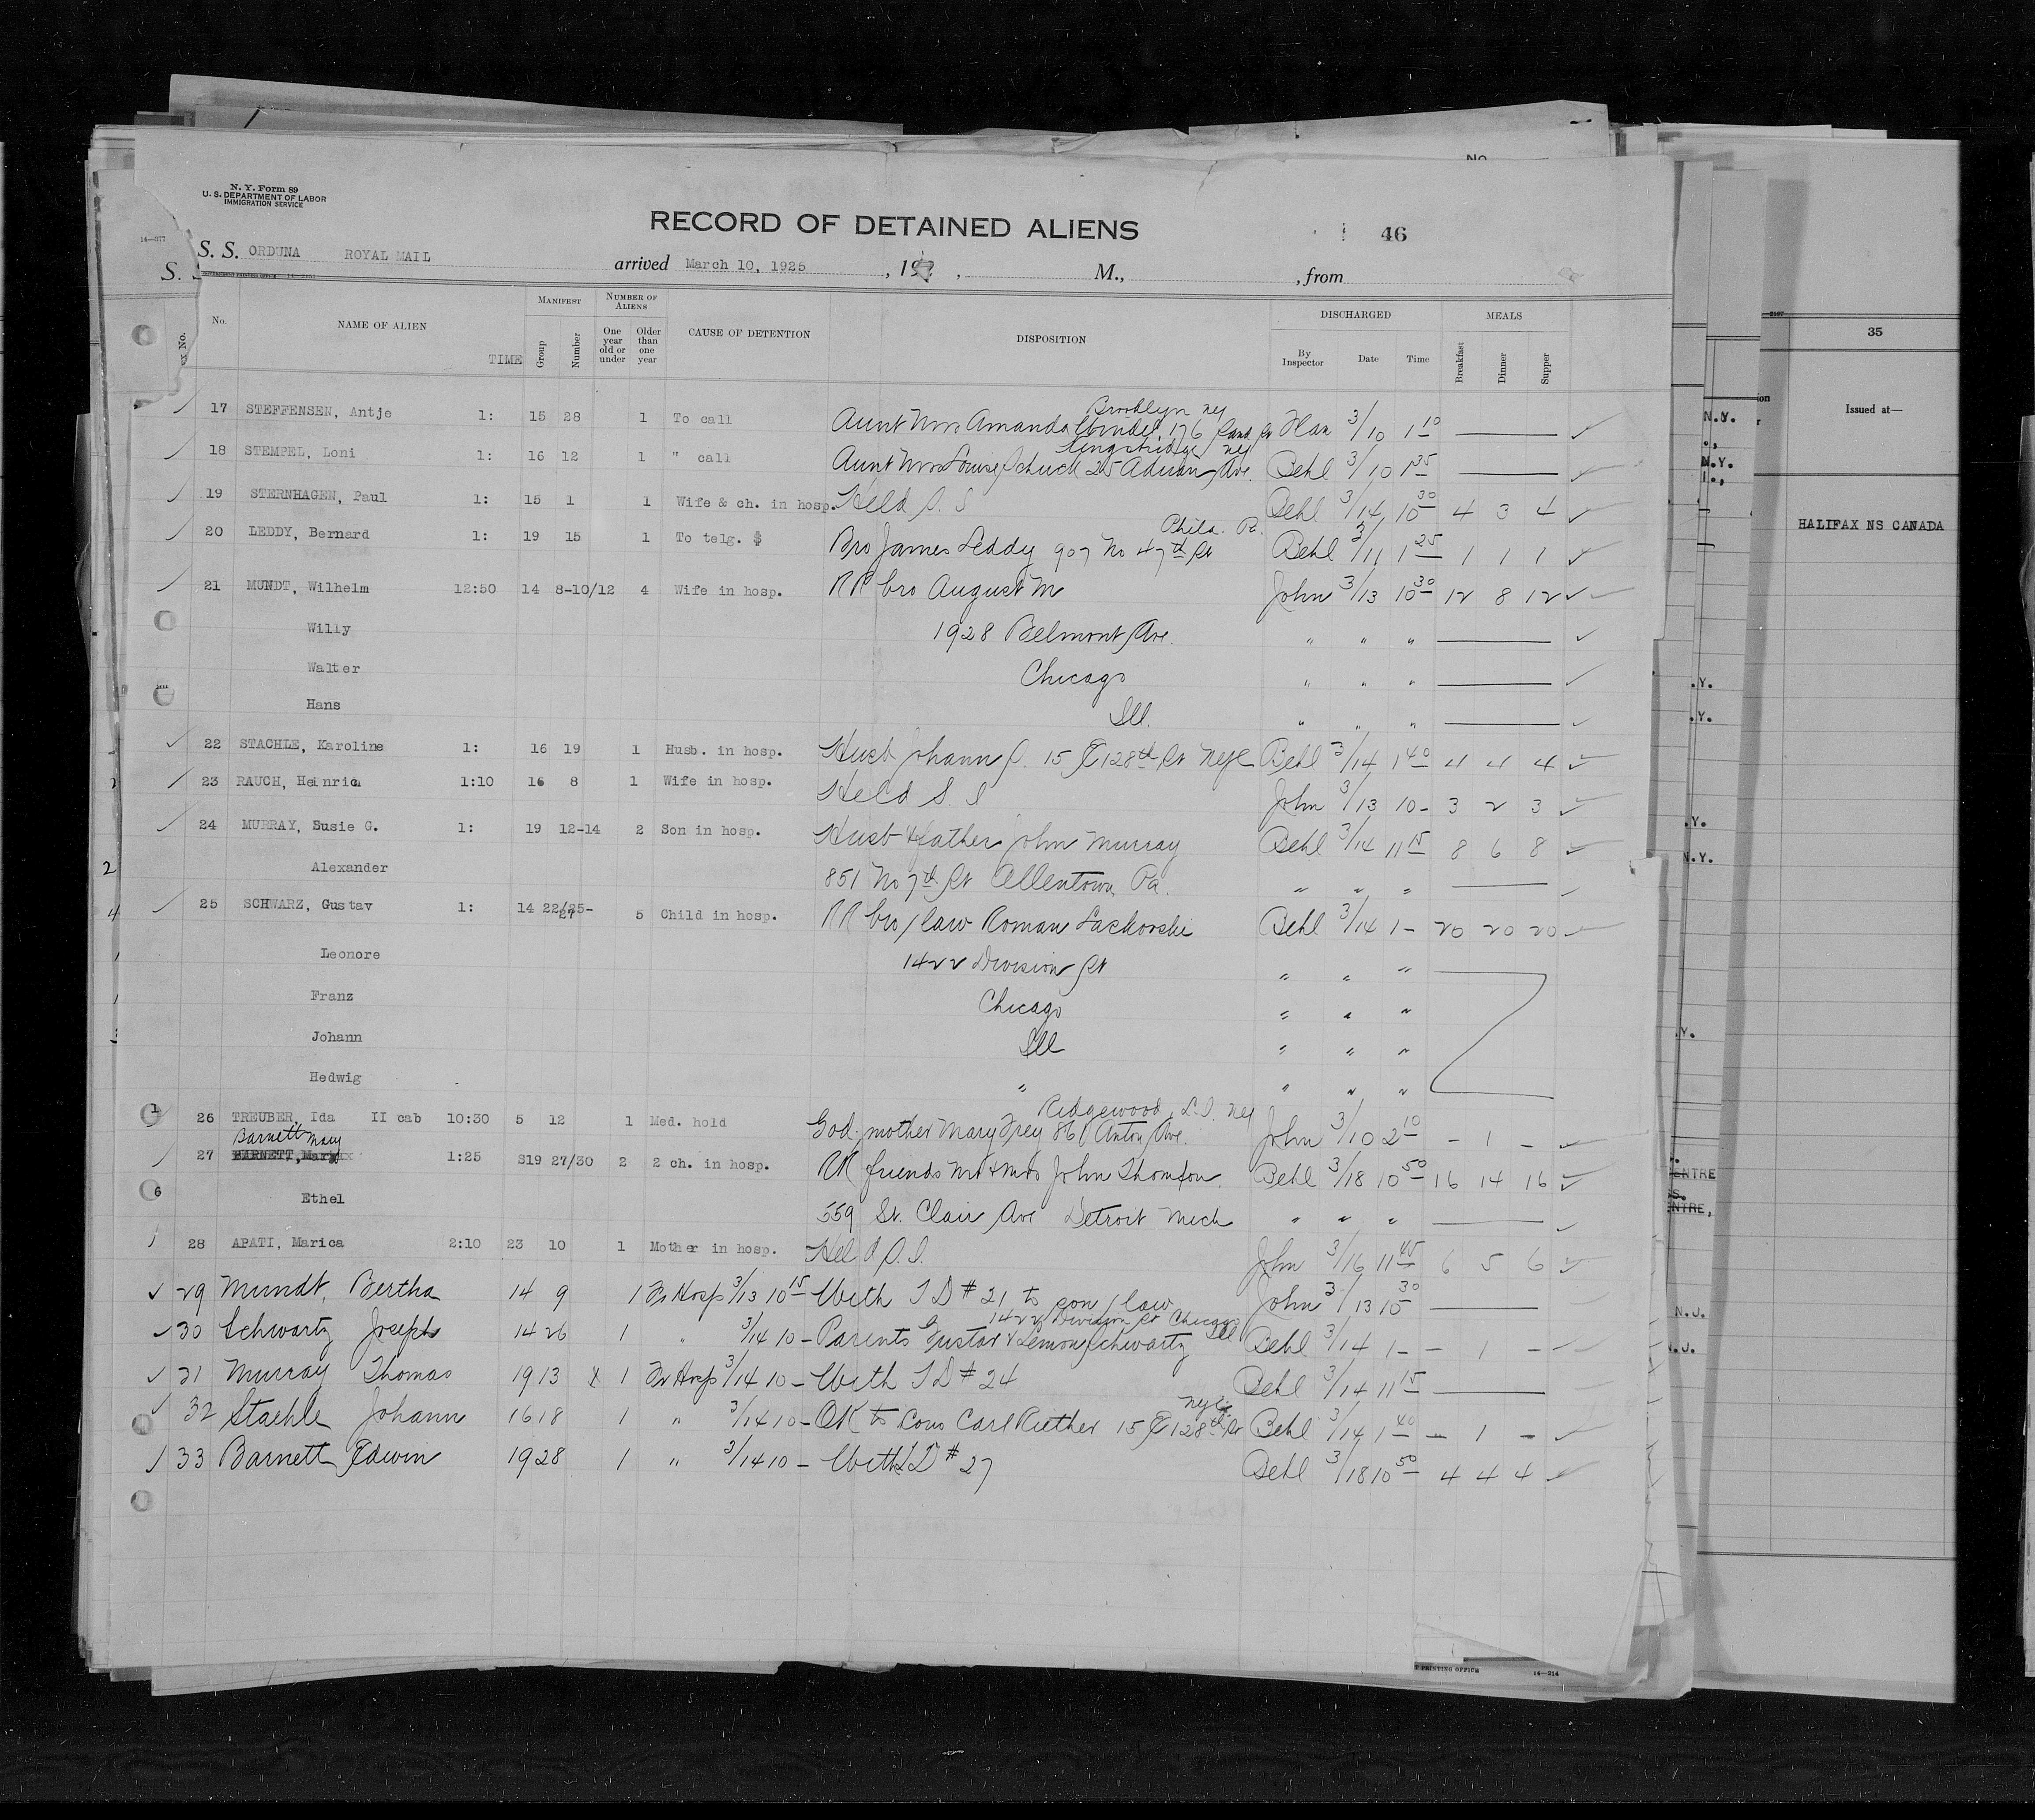 N. Y. Form 89
U. S. DEPARTMENT OF LABOR
IMMIGRATION SERVICE
RECORD OF DETAINED ALIENS
46
S. S. ORDUNA ROYAL MAIL arrived March 10, 1925 , 19 , M., , from
No. NAME OF ALIEN TIME MANIFEST Group Number NUMBER OF ALIENS One year old or under Older than one year CAUSE OF DETENTION DISPOSITION DISCHARGED By Inspector Date Time MEALS Breakfast Dinner Supper
Brooklyn NY
17 STEFFENSEN, Antje 1: 15 28 1 To call Aunt Mrs Amanda 176 3/10 1 10
Kingsbridge NY
18 STEMPEL, Loni 1: 16 12 1 " call Aunt Mrs Louise Schuck 25 Adrian Ave. Behl 3/10 1 35
19 STERNHAGEN, Paul 1: 15 1 1 Wife & ch. in hosp. Held S. I Behl 3/14 10 30 4 3 4
Phila. Pa.
20 LEDDY, Bernard 1: 19 15 1 To telg. $ Bro James Leddy 907 No 47th St Behl 3/11 1 25 1 1 1
21 MUNDT, Wilhelm 12:50 14 8-10/12 4 Wife in hosp. RR bro August M John 3/13 10 30 12 8 12
Willy 1928 Belmont Ave. " " "
Walter Chicago " " "
Hans Ill. " " "
22 STACHLE, Karoline 1: 16 19 1 Husb. in hosp. Husb Johann S. 15 E 128th St NYC Behl 3/14 1 40 4 4 4
23 RAUCH, Heinrich 1:10 16 8 1 Wife in hosp. Held S. I John 3/13 10 - 3 2 3
24 MURRAY, Susie G. 1: 19 12-14 2 Son in hosp. Husb & father John Murray Behl 3/14 11 15 8 6 8
Alexander 851 No 7th St Allentown, Pa. " " "
25 SCHWARZ, Gustav 1: 14 22/25-27 5 Child in hosp. RR bro/law Roman Lackorski Behl 3/14 1 - 20 20 20
Leonore 1422 Division St " " "
Franz Chicago " " "
Johann Ill " " "
Hedwig " " " "
Ridgewood, L.I. NY
26 TREUBER, Ida II cab 10:30 5 12 1 Med. hold God mother Mary Frey 861 Anton Ave. John 3/10 2 10 - 1 -
Barnett Mary
27 BARNETT, Marie 1:25 S19 27/30 2 2 ch. in hosp. RR friends Mr & Mrs John Thomson Behl 3/18 10 50 16 14 16
Ethel 559 St. Clair Ave Detroit Mich " " "
28 APATI, Marica 2:10 23 10 1 Mother in hosp. Held S. I. John 3/16 11 45 6 5 6
29 Mundt, Bertha 14 9 1 Fr Hosp 3/13 10 15 With TD # 21 to son/law John 3/13 10 30
1422 Division St Chicago Ill
30 Schwartz Joseph 14 26 1 " 3/14 10 - Parents Gustav & Schwartz Behl 3/14 1 - - 1 -
31 Murray Thomas 19 13 x 1 Fr Hosp 3/14 10 - With TD # 24 Behl 3/14 11 15
NYC
32 Staehle Johann 16 18 1 " 3/14 10 - OK to Cous Carl Riether 15 E 128th St Behl 3/14 1 40 - 1 -
33 Barnett Edwin 19 28 1 " 3/14 10 - With TD # 27 Behl 3/18 10 50 4 4 4
35
Issued at—
HALIFAX NS CANADA